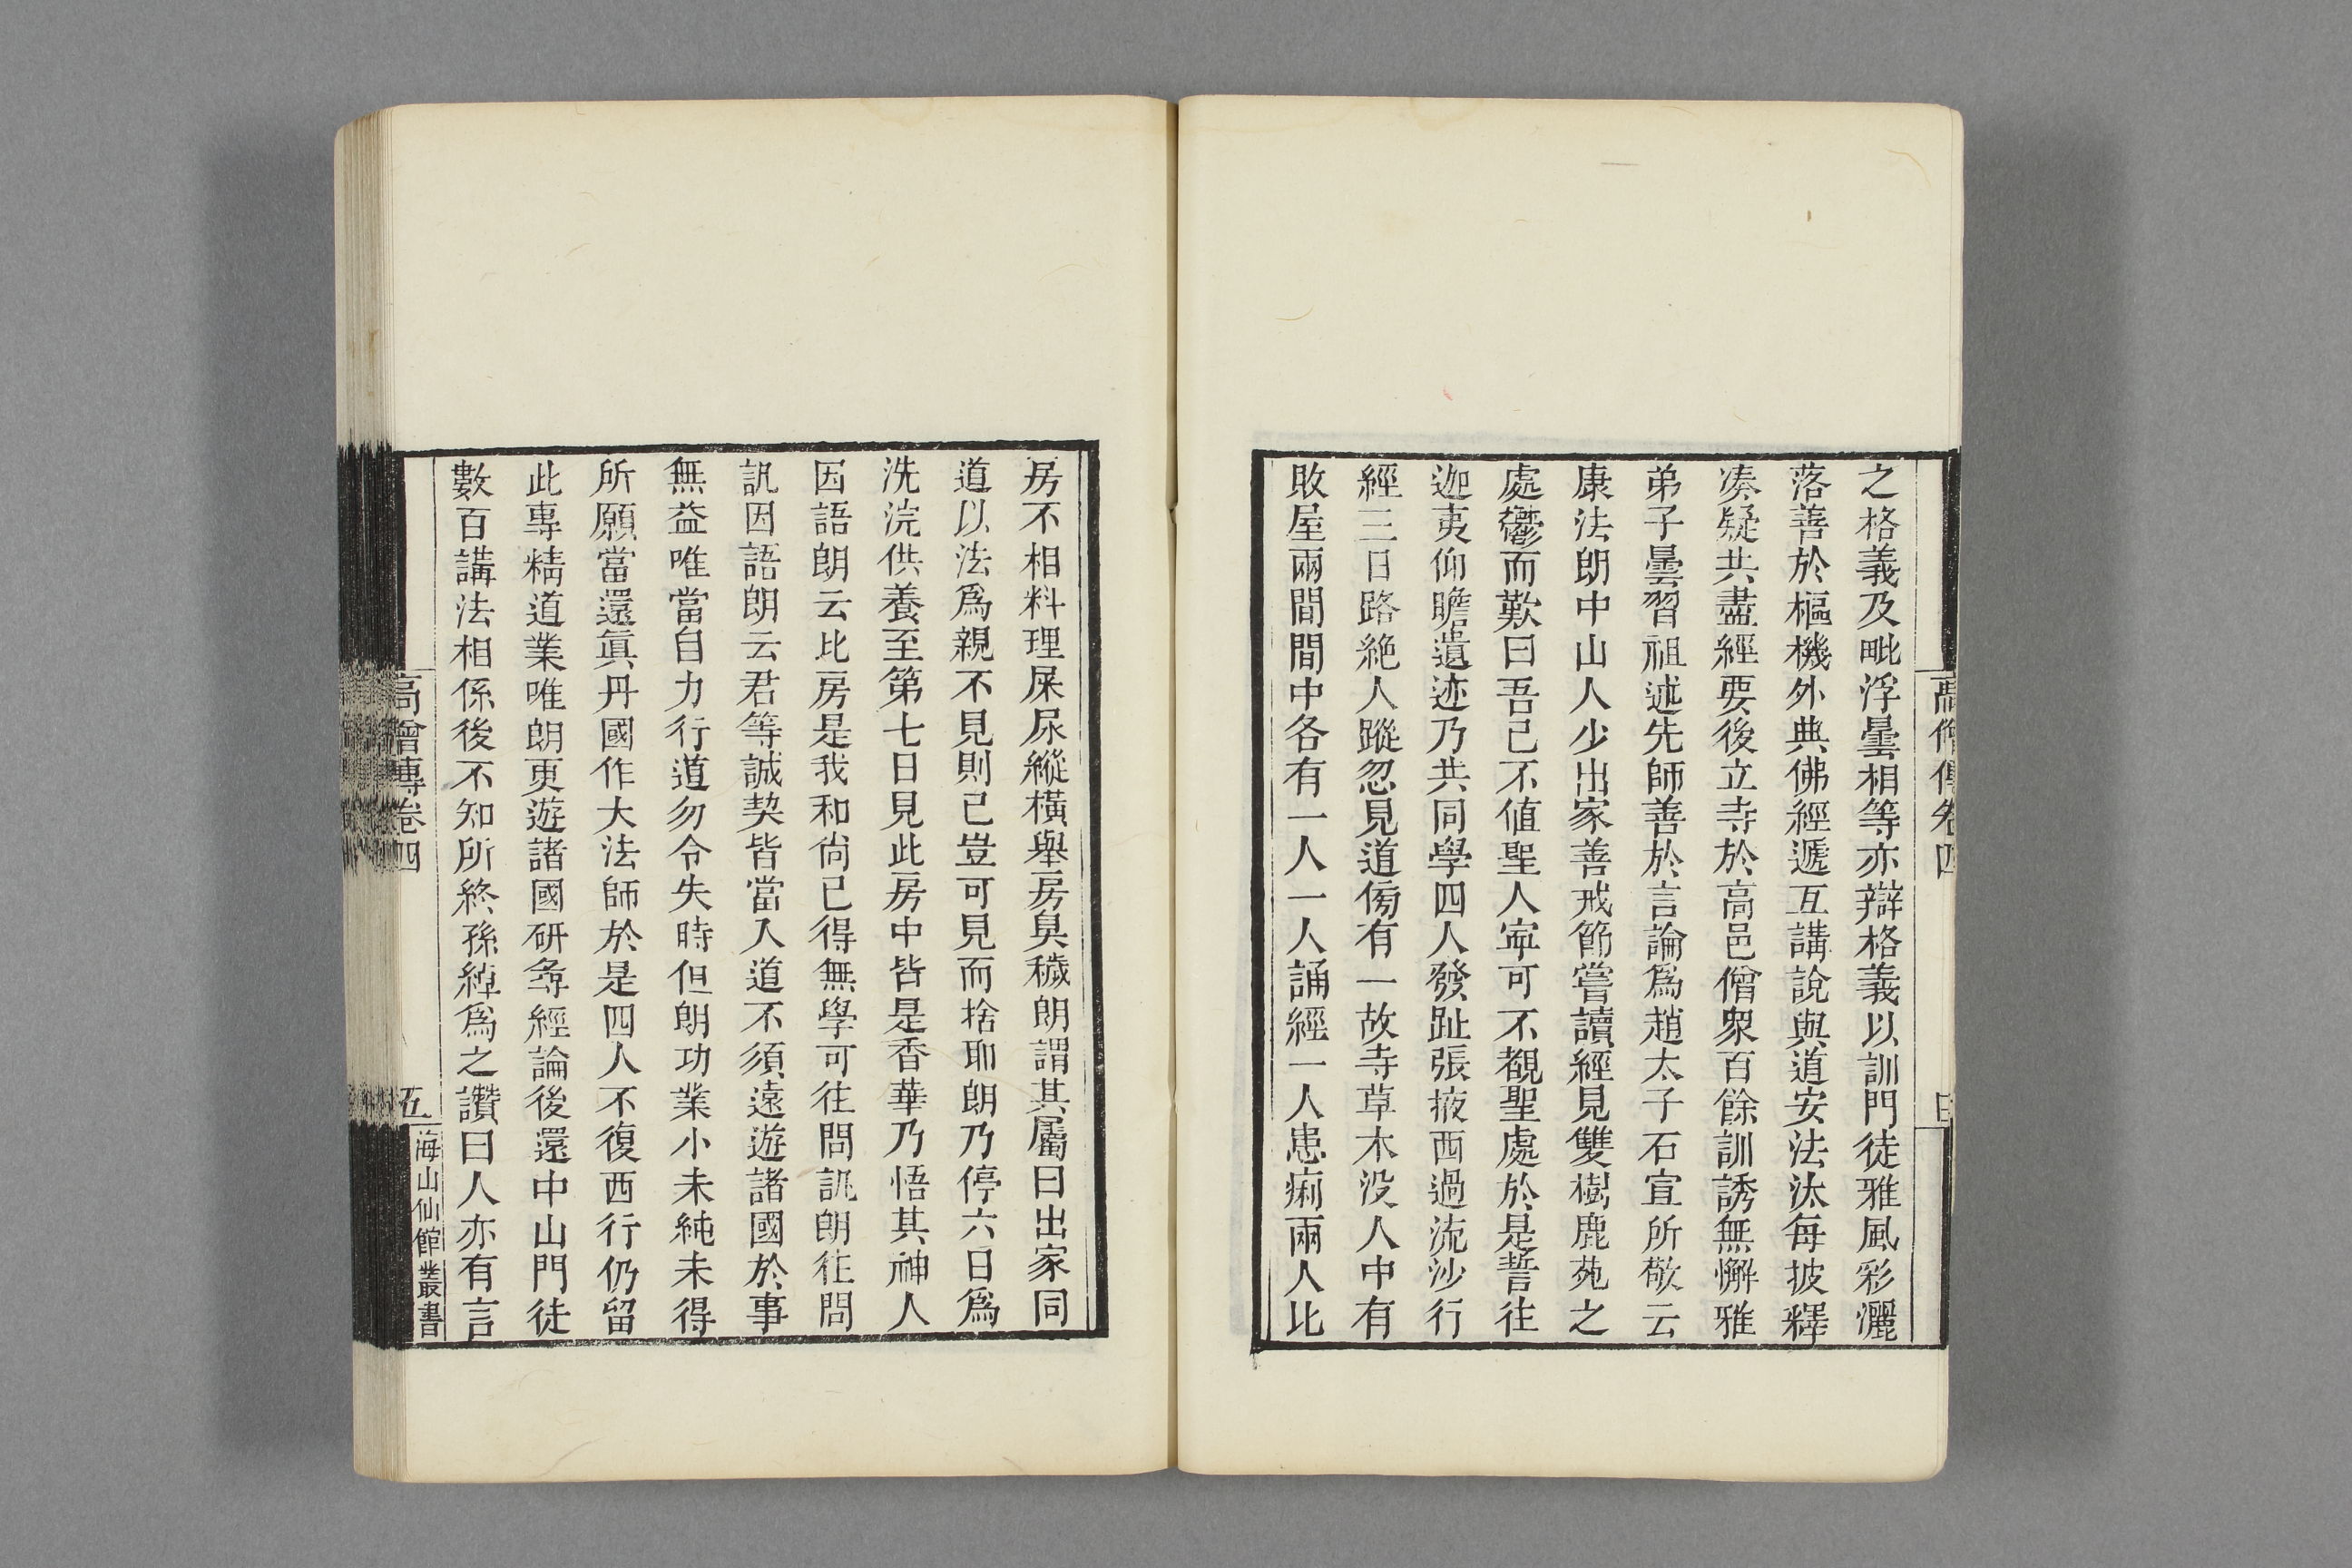 高僧傳卷四
之格義及毗浮曇相等亦辯格義以訓門徒雅風彩灑
落善於樞機外典佛經遞互講說與道安法汰每披釋
湊疑共盡經要後立寺於高邑僧衆百餘訓誘無懈雅
弟子曇習祖述先師善於言論爲趙太子石宣所敬云
康法朗中山人少出家善戒節嘗讀經見雙樹鹿苑之
處鬱而歎曰吾已不値聖人寜可不覩聖處於是誓往
迦夷仰瞻遺迹乃共同學四人發趾張掖西過流沙行
經三日路絶人蹤忽見道傍有一故寺草木没人中有
敗屋兩間間中各有一人一人誦經一人患痢兩人比
房不相料理屎尿縱橫舉房臭穢朗謂其屬曰出家同
道以法爲親不見則已豈可見而捨耶朗乃停六日爲
洗浣供養至第七日見此房中皆是香華乃悟其神人
因語朗云比房是我和尙已得無學可往問訊朗往問
訊因語朗云君等誠契皆當入道不須遠遊諸國於事
無益唯當自力行道勿令失時但朗功業小未純未得
所願當還眞丹國作大法師於是四人不復西行仍留
此專精道業唯朗更遊諸國研尋經論後還中山門徒
數百講法相係後不知所終孫綽爲之讚曰人亦有言
高僧傳卷四
五
海山仙館叢書